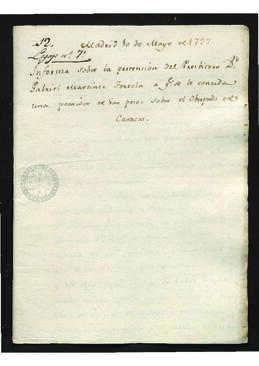 52. Madrid 10 de Mayo de 1797
Legajo nº 7º
Informa sobre la pretension del Presbitero Dn
Gabriel Martinez a qe se le conceda
una pension de pesos sobre el Obispado de
Caracas.